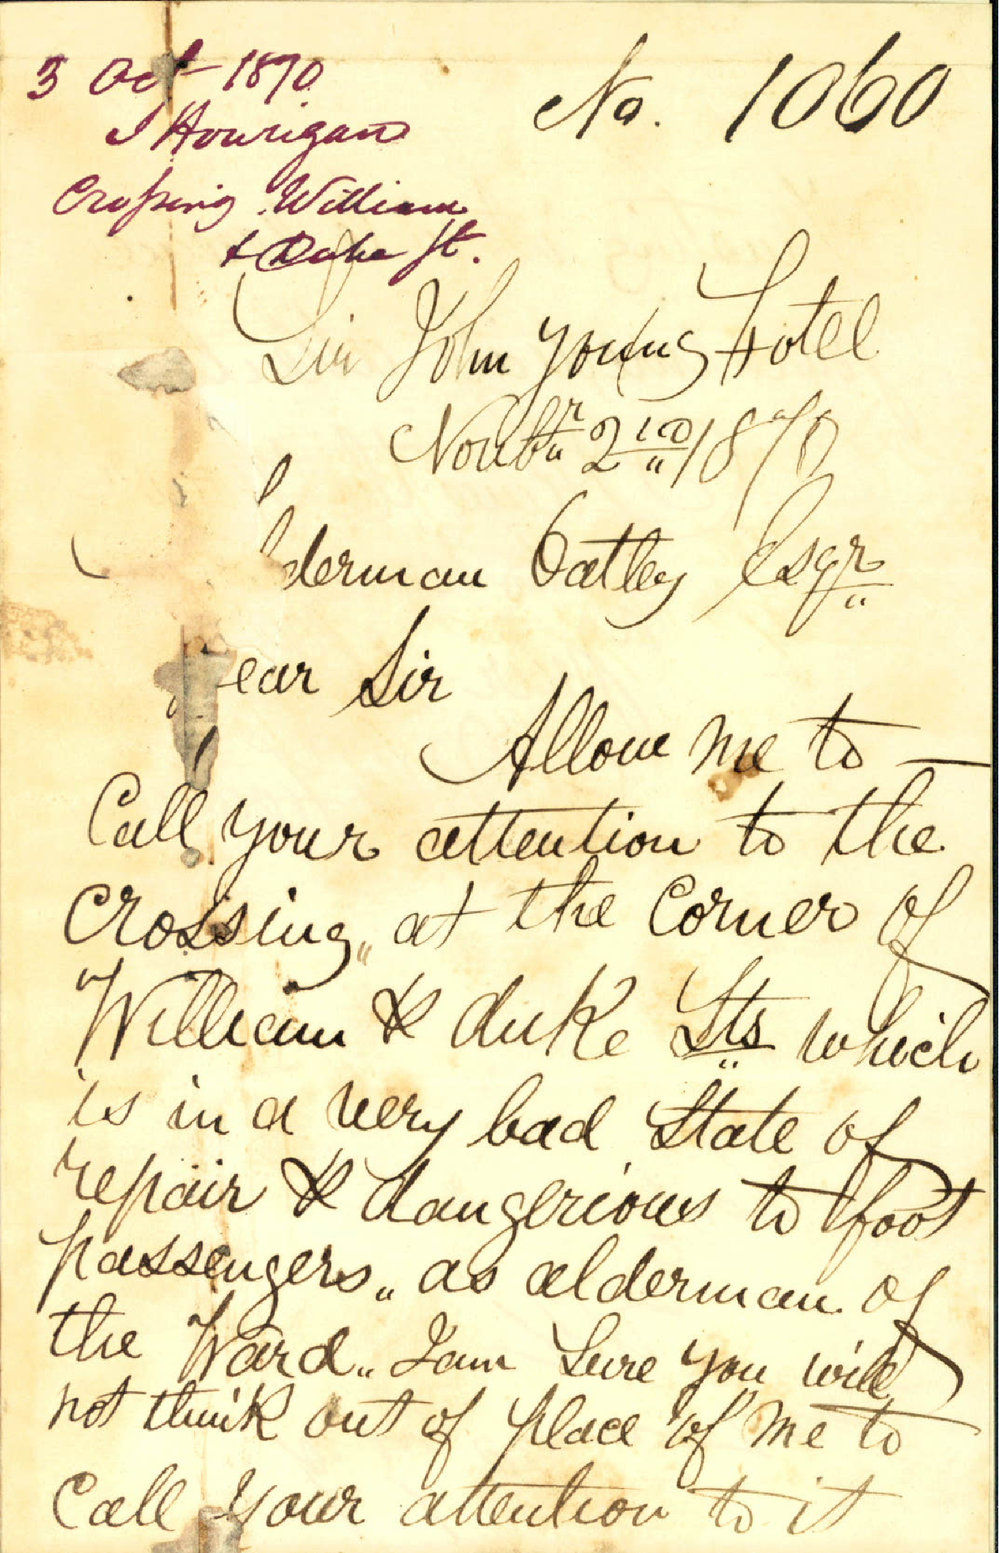 3 Oct 1870
No. 1060
J Hourigan
Crossing William
& Duke St.
Sir John Young Hotel
Novbr 2nd 1870
lderman Oatley Esqr
ear Sir
Allow me to
Call your attention to the
Crossing, at the Corner of
William & duke Sts which
is in a very bad State of
repair & dangerious to foot
passengers, as alderman of
the Ward, I am Sure you will
not think out of place of me to
Call your attention to it